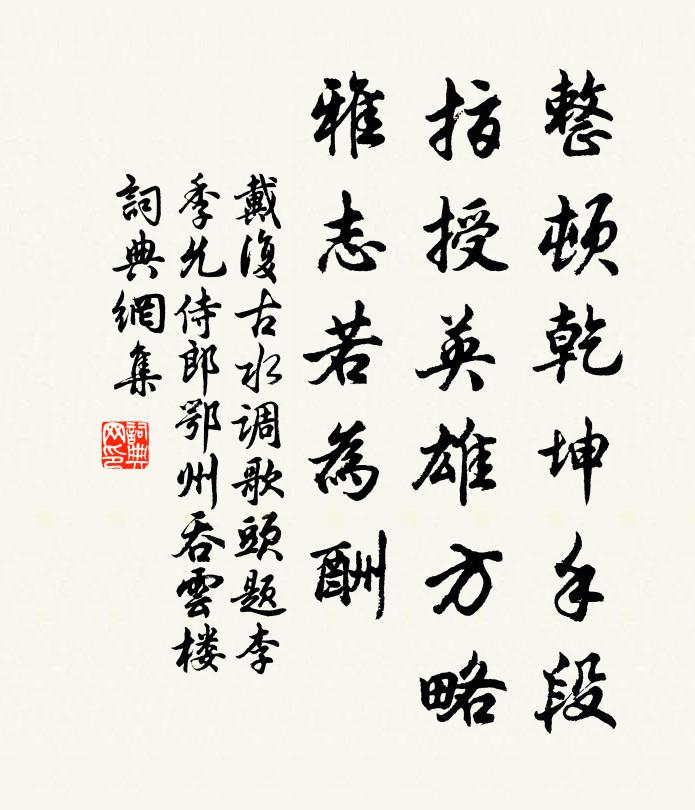 整頓乾坤手段
指授英雄方略
雅志若為酬
戴復古水调歌頭题李
季允侍郎鄂州吞雲楼
詞典網集
詞典
网印